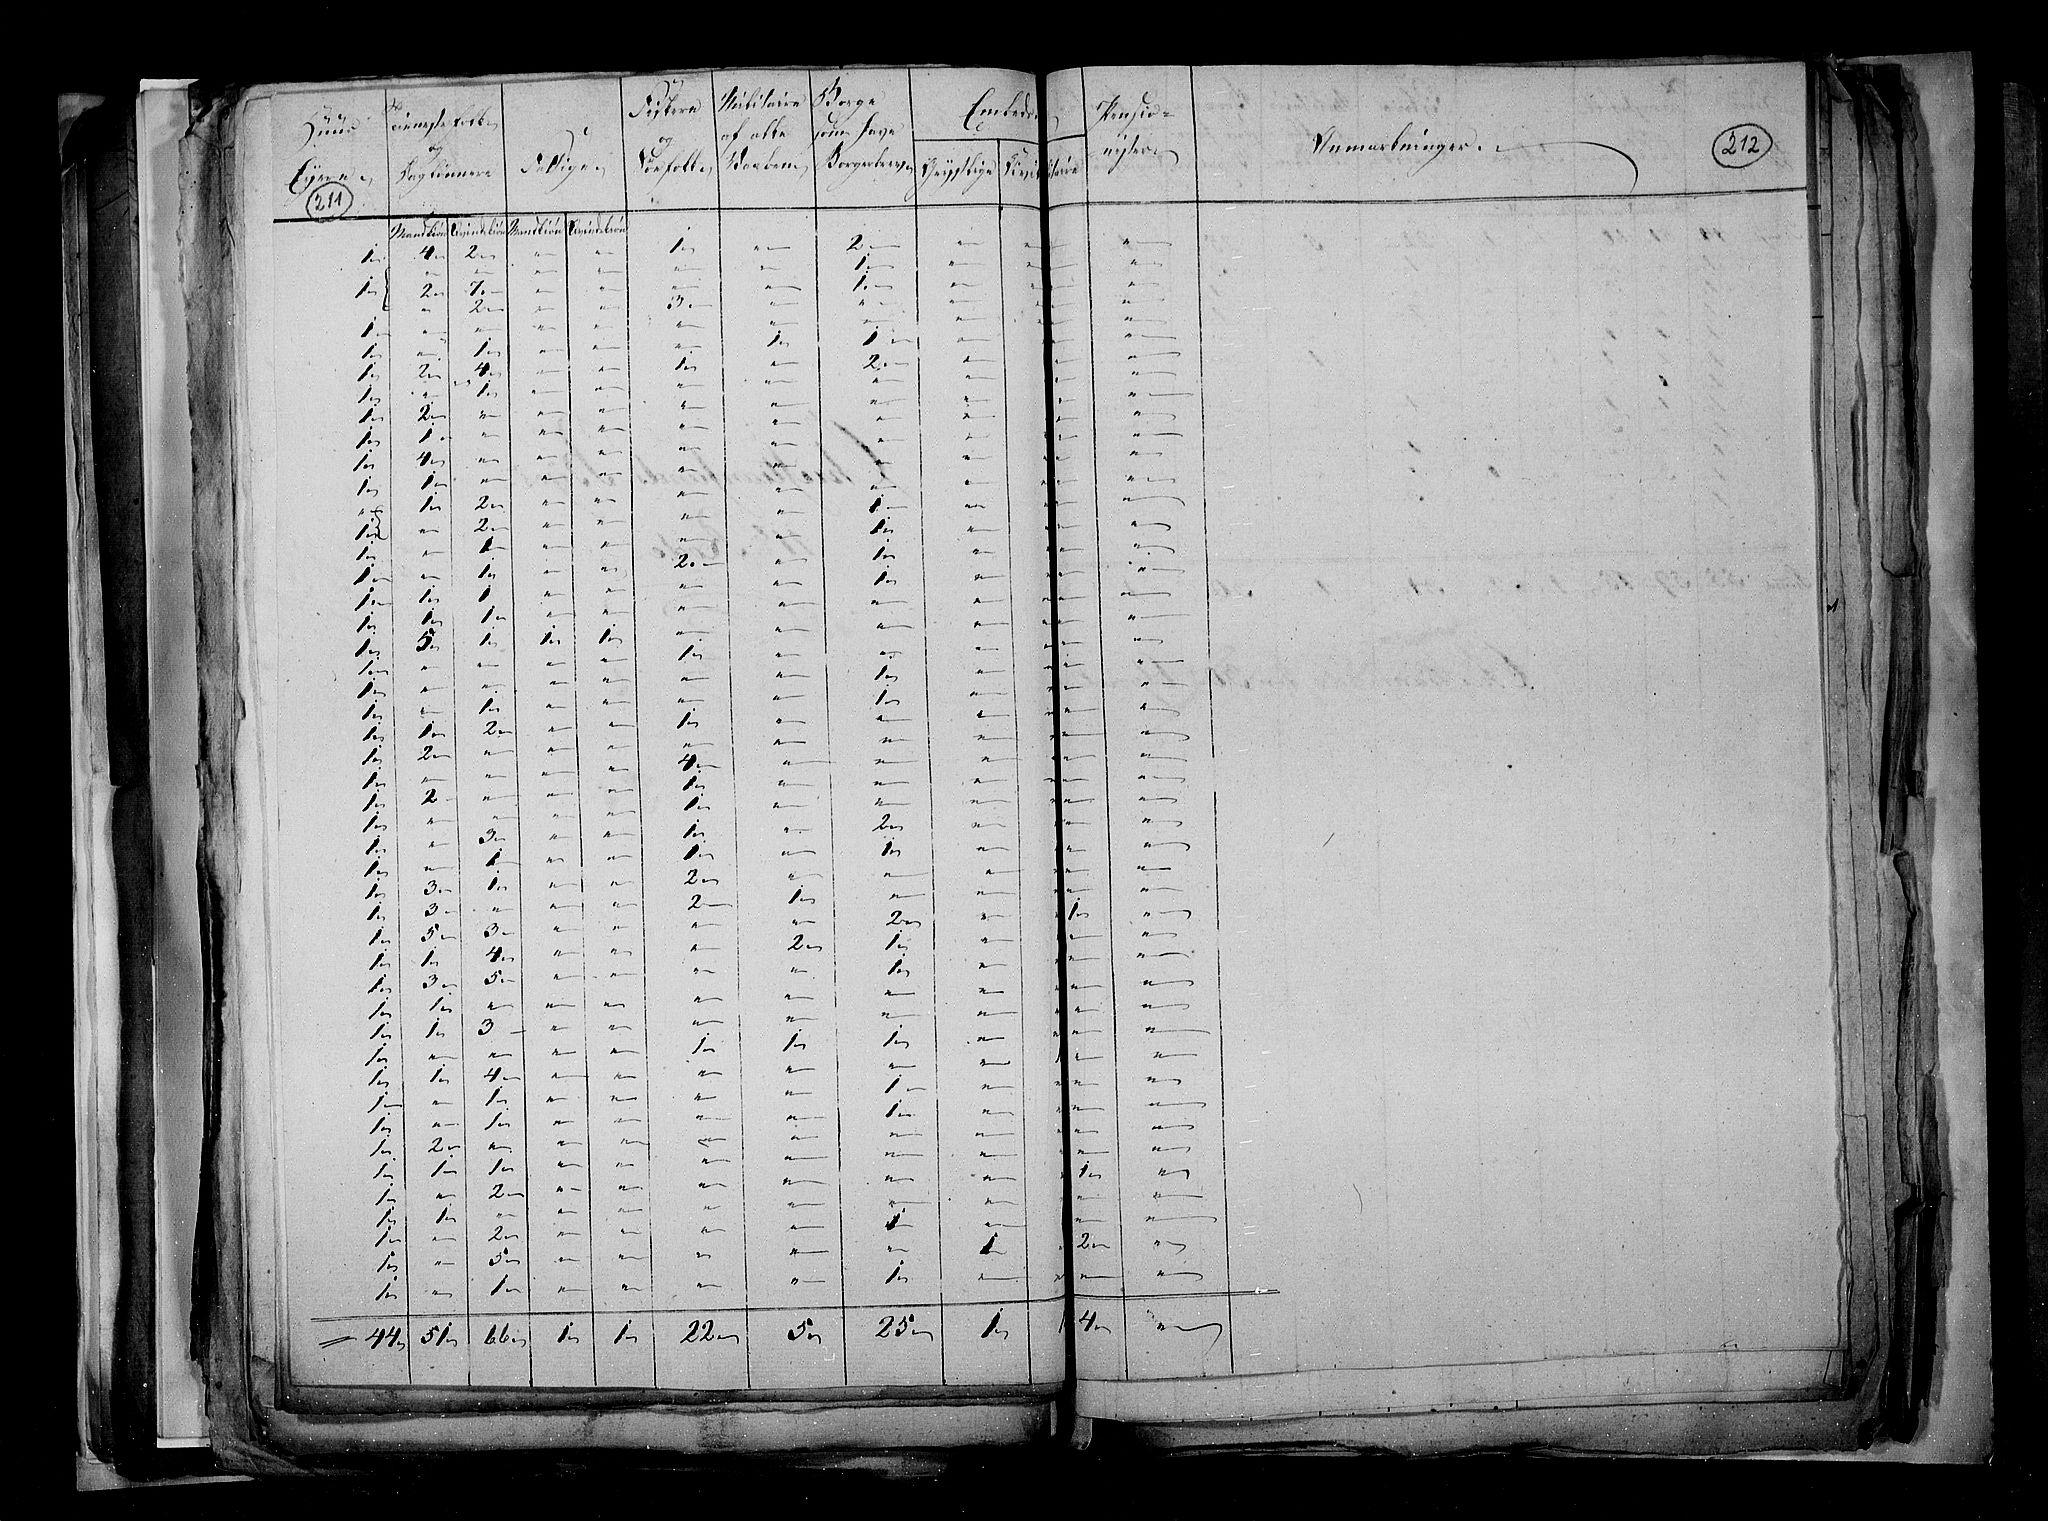 Huus Eyere
Tieneste folk og Daglønnere
Fattige
Fiskere og Søefolk
Militaire af alle Vaaben
Borge som have Borgerbrev
Embeder
Geistlige Civil Militaire
Pensionister
Anmærkninger
211
212
Mandkiøn Qvindekiøn Mandkiøn Qvindekiøn
1 4 2 " " 1 " 2 " " "
" " " " " " 1 " " "
1 2 7 " " " " 1 " " "
" 2 " " 3 " " " " "
1 " " " " " " " " " "
1 " 1 " " " 1 1 " " "
1 2 4 " " 1 " 2 " " "
1 " 1 " " " " " " " "
1 2 " " " " " " " " "
1 1 " " " " " " " " "
1 4 " " " " " " " " "
1 1 " " " " " " " " "
" 1 2 " " " " 1 " " "
1 " 2 " " " " 1 " " "
1 " 1 " " 2 " 1 " " "
1 " 1 " " " " 1 " " "
1 1 1 " " " " " " " "
1 1 1 " " " " " " " "
1 5 1 1 1 1 " " " " "
1 " " " " " " 1 " " "
1 " " " " " " 1 " " "
1 " 1 " " 1 " " " " "
1 1 2 " " " " " " " "
1 2 " " " 4 " " " " "
1 " " " " 1 " " " " "
1 2 " " " 1 " " " " "
1 " " " " 1 " 2 " " "
1 " 3 " " 1 " 1 " " "
1 " 1 " " 2 " " " " "
1 3 1 " " 2 1 " " 1 "
1 3 " " " " " 2 " " "
1 5 3 " " " 2 1 " " "
1 1 4 " " " " 1 " " "
1 3 5 " " " " " " " "
1 1 " " " " " " " " "
1 1 3 " " 1 1 1 " " "
1 " " " " " " " " " "
1 1 4 " " " " 1 " " "
1 " 1 " " " " 1 " " "
1 " 1 " " " " " " " "
1 2 " " " " " " " " "
1 1 1 " " " " " " 1 "
1 " 2 " " " " " " " "
1 1 " " " " " " " " "
1 " 2 " " " " 1 " " "
1 " 5 " " " " " 1 2 "
1 " 1 " " " " 1 " " "
44 51 66 1 1 22 5 25 1 4 "